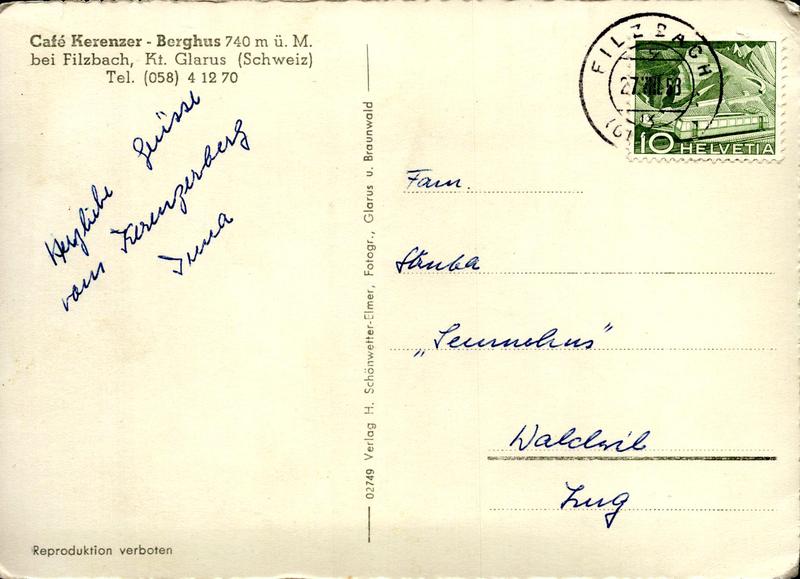 Café Kerenzer - Berghus 740 m ü. M.
bei Filzbach, Kt. Glarus (Schweiz)
Tel. (058) 4 12 70
Herzliche Grüsse
vom Kerenzerberg
Irma
02749 Verlag H. Schönwetter-Elmer, Fotogr., Glarus u. Braunwald
FILZBACH
HELVETIA
10
Fam.
Stauba
Walchwil
Zug
Reproduktion verboten